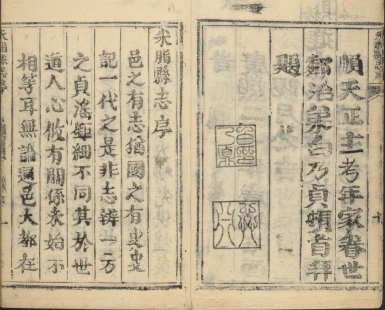 順天正主考年家眷世
鄰治弟白乃貞頓首拜
題
米脂縣志序
邑之有志猶國之有史史
記一代之是非志辨一方
之貞淫鉅細不同其於世
道人心攸有關係未始不
相等耳無論通邑大都在